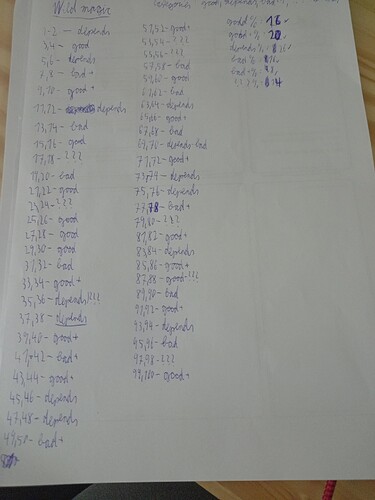 Wild magic
1-2 - depends
3,4 - good
5,6 - depends
7,8 - bad+
9,10 - good+
11,12 - depends
13,14 - bad
15,16 - good
17,18 - ???
19,20 - bad
21,22 - good
23,24 - ???
25,26 - good
27,28 - good
29,30 - good
31,32 - bad
33,34 - good+
35,36 - depends/???
37,38 - depends
39,40 - good+
41,42 - bad+
43,44 - good+
45,46 - depends
47,48 - depends
49,50 - bad+
51,52 - good+
53,54 - ???
55,56 - ???
57,58 - bad+
59,60 - good
61,62 - bad
63,64 - depends
65,66 - good+
67,68 - bad
69,70 - depends-bad
71,72 - good+
73,74 - depends
75,76 - depends
77,78 - bad+
79,80 - ???
81,82 - good+
83,84 - depends
85,86 - good+
87,88 - good-???
89,90 - bad
91,92 - good+
93,94 - depends
95,96 - bad
97,98 - ???
99,100 - good+
good, depends, bad
good % : 16
good+ % : 20
depends %:
bad %:
bad+ %:
??? %: